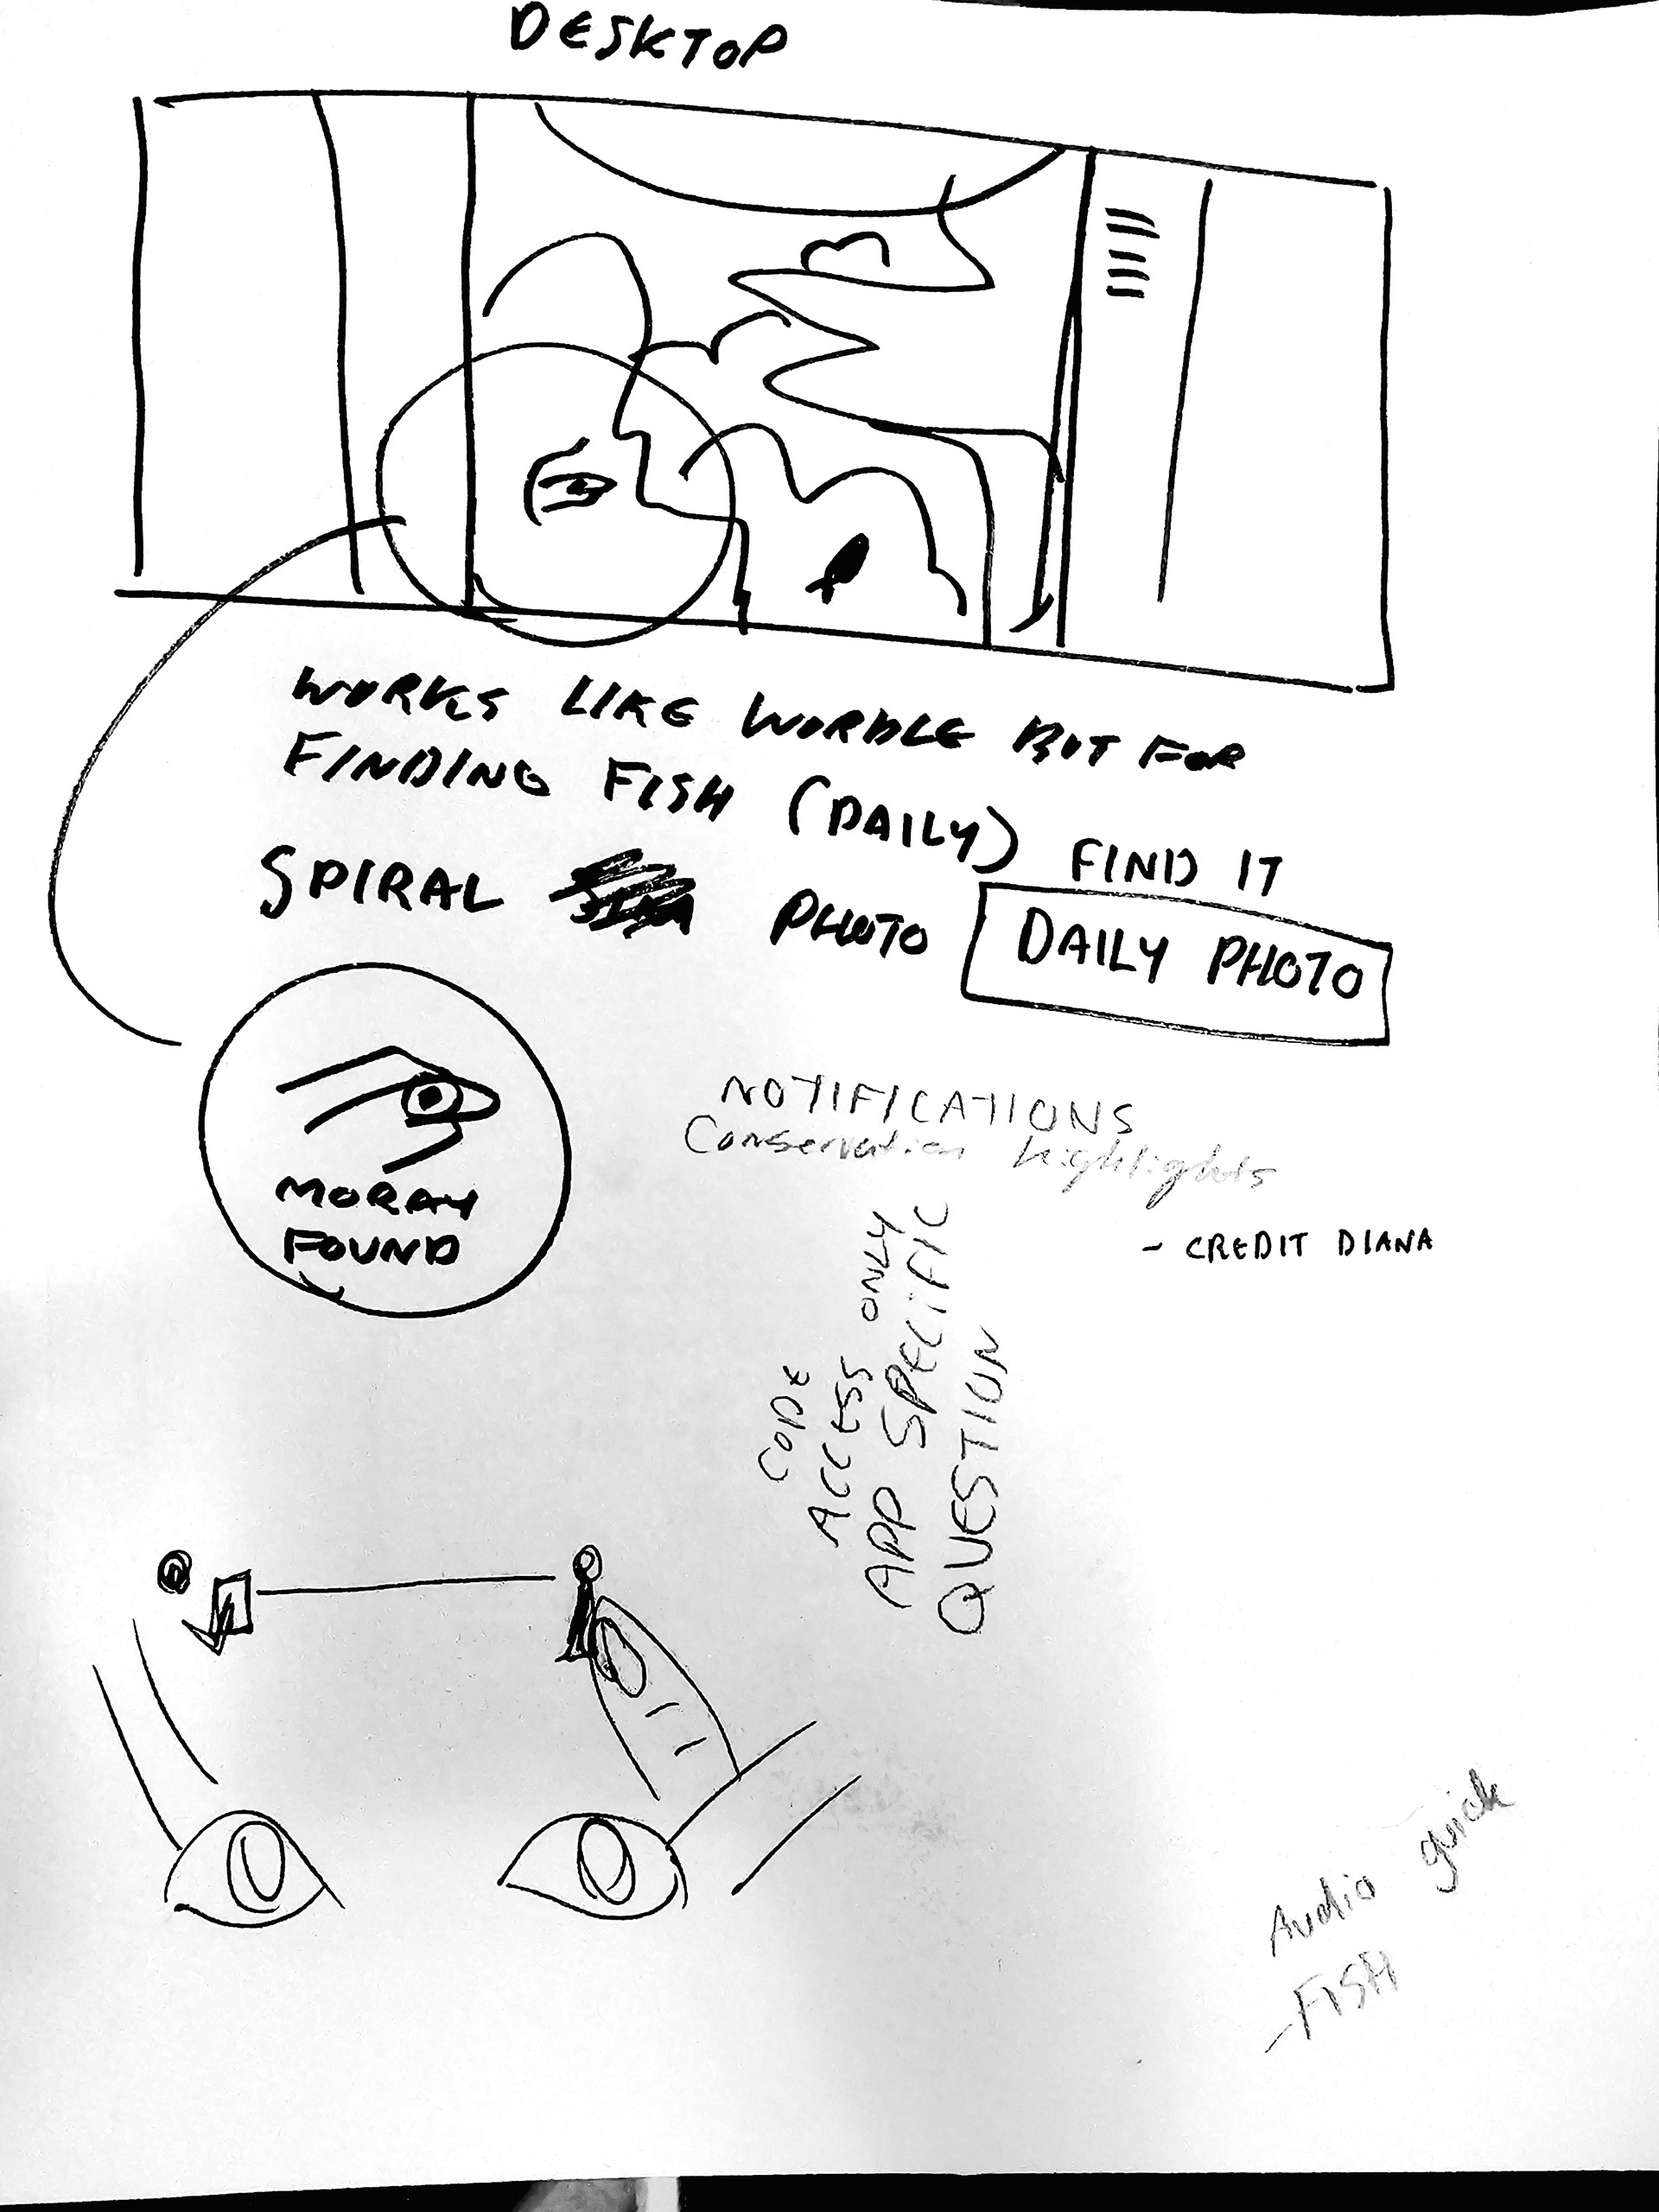 DESKTOP
WORKS LIKE WORDLE BUT FOR
FINDING FISH (DAILY) FIND IT
SPIRAL PHOTO DAILY PHOTO
MORAY
FOUND
NOTIFICATIONS
Conservation highlights
- CREDIT DIANA
CODE
ACCESS ONLY
APP SPECIFIC
QUESTION
Audio quick
- FISH